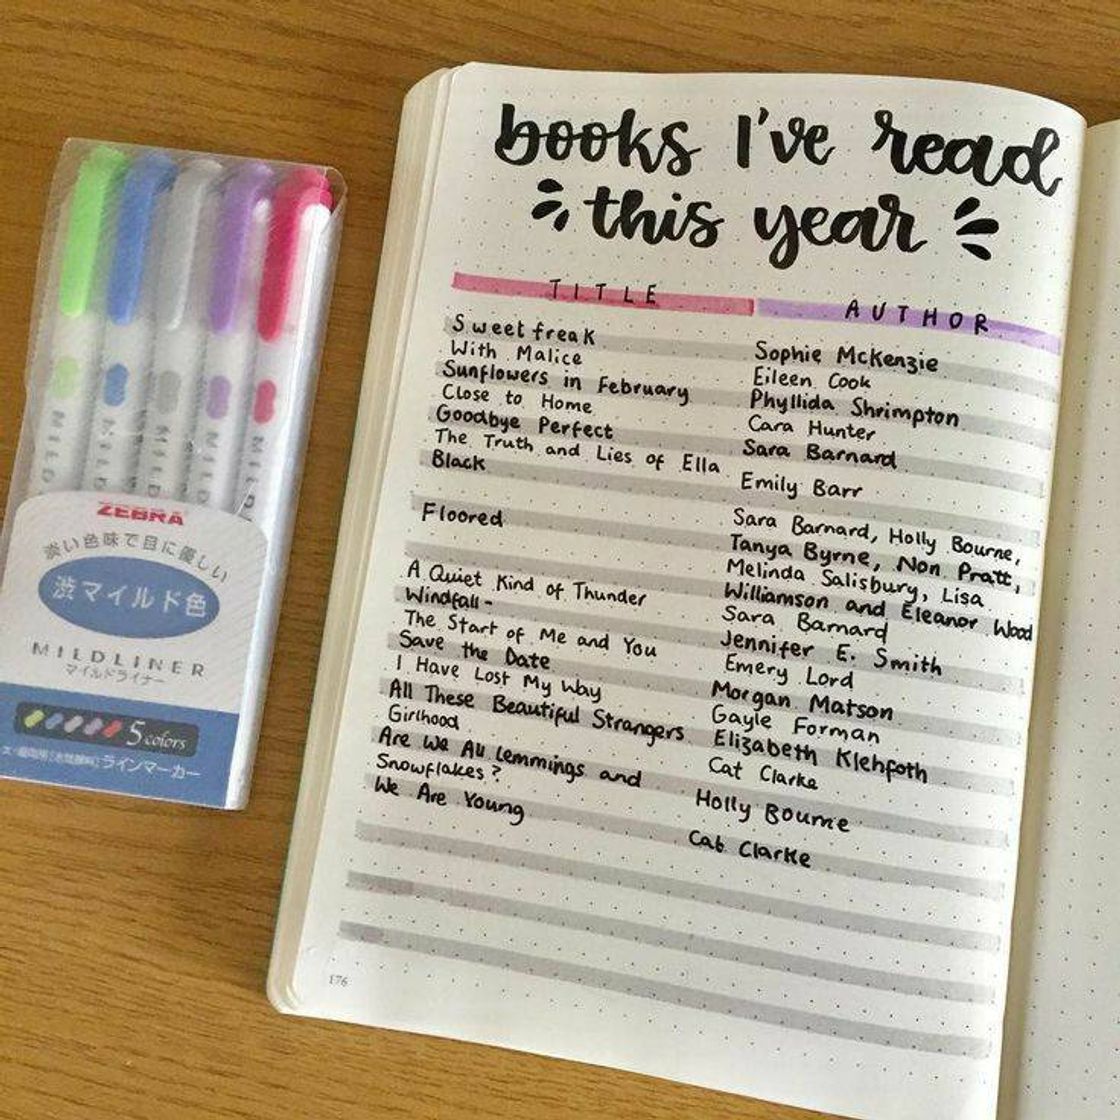 books I've read
this year
TITLE AUTHOR
Sweetfreak Sophie McKenzie
With Malice Eileen Cook
Sunflowers in February Phyllida Shrimpton
Close to Home Cara Hunter
Goodbye Perfect Sara Barnard
The Truth and Lies of Ella
Black Emily Barr
Floored Sara Barnard, Holly Bourne,
Tanya Byrne, Non Pratt,
Melinda Salisbury, Lisa
Williamson and Eleanor Wood
A Quiet Kind of Thunder Sara Barnard
Windfall- Jennifer E. Smith
The Start of Me and You Emery Lord
Save the Date Morgan Matson
I Have Lost My Way Gayle Forman
All These Beautiful Strangers Elizabeth Klehfoth
Girlhood Cat Clarke
Are We All Lemmings and
Snowflakes? Holly Bourne
We Are Young Cat Clarke
176
MILD
MILD
MILD
MILD
MILD
ZEBRA
淡い色味で目に優しい
渋マイルド色
MILDLINER
マイルドライナー
5 colors
ラインマーカー